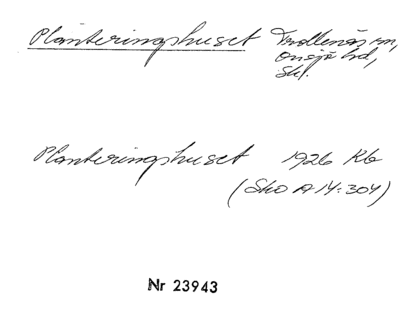 Planteringshuset Trollenäs sn,
Onsjö hd,
Sk.
Planteringshuset 1926 Rb
(SkO A 14:304)
Nr 23943